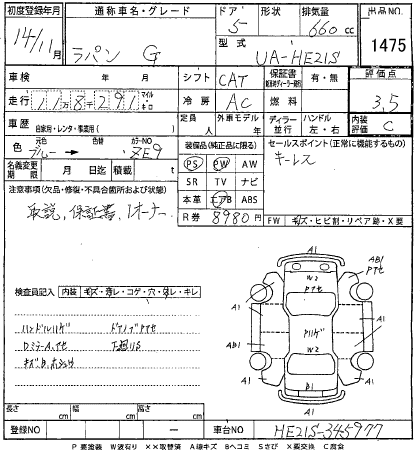 初度登録年月 14/11月
通称車名・グレード ラパン G
ドア 5 形状 排気量 660 cc
型式 UA-HE21S
出品NO. 1475
車検 年 月 シフト CAT 保証書 有・無 評価点 3.5
走行 マイル キロ 冷房 AC 燃料
車歴 自家用・レンタ・事業用( ) 定員 人 外車モデル 年 ディーラー 並行 ハンドル 左・右 内装評価 C
色 元色 ブルー → 色替 カラーNO ZE9
名義変更期限 月 日迄 積載 t
装備品(純正品に限る)
PS PW AW
SR TV ナビ
本革 エアB ABS
R券 8980 円
セールスポイント(正常に機能するもの)
キーレス
FW キズ・ヒビ割・リペア跡・X要
注意事項(欠品・修復・不具合箇所および状態)
取説,保証書,1オーナー
検査員記入 内装 キズ・汚レ・コゲ・穴・切レ・キレ
ハンドルハゲ
A1
AB1
W2
A1
A1
AB1
A1
W2
A1
B1
A1
長さ cm 幅 cm 高さ cm
登録NO 一 車台NO HE21S-345977
P 要塗装 W 波有り ××取替済 A 線キズ Bヘコミ Sさび X要交換 C腐食